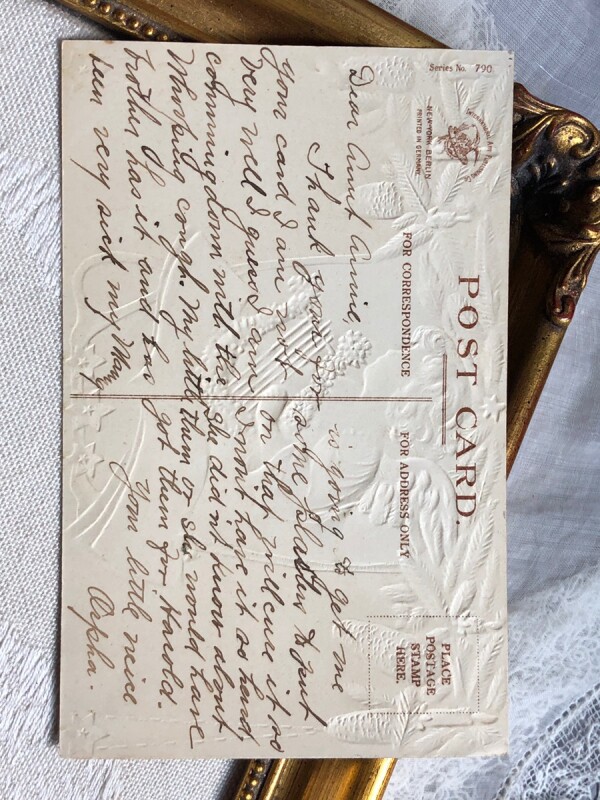 Series No. 790
NEW-YORK BERLIN
PRINTED IN GERMANY
POST CARD.
FOR CORRESPONDENCE
FOR ADDRESS ONLY
PLACE
POSTAGE
STAMP
HERE.
Dear Aunt Annie,
Thank you for
your card I am not
very well I guess I am
comming down with the
cogh. My little
brother has it and has
very sick my
is going to get me
some plasters to put
on that will cure it so
I won't have it as hard
She didn't know about
them or she would have
got them for Harold.
Your little neice
Orpha.